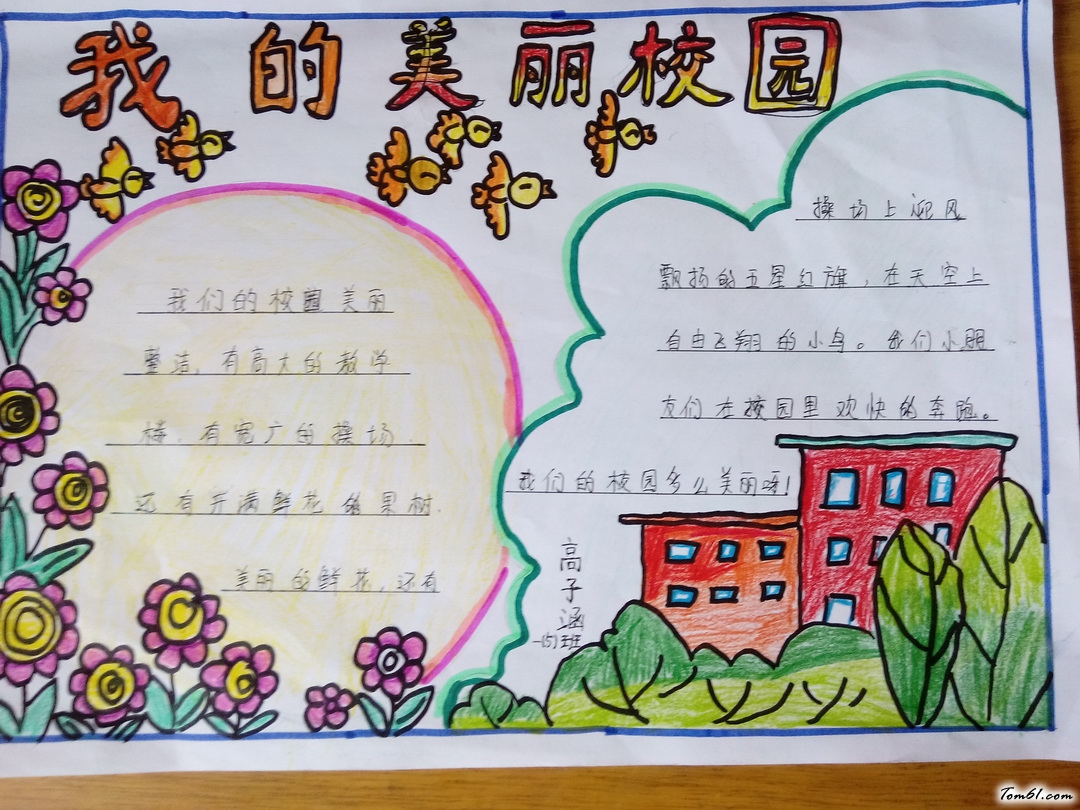 我的美丽校园
我们的校园美丽
整洁,有高大的教学
楼.有宽广的操场.
还有开满鲜花的果树.
美丽的鲜花,还有
操场上迎风
飘扬的五星红旗,在天空上
自由飞翔的小鸟。我们小朋
友们在校园里欢快的奔跑。
我们的校园多么美丽呀!
高子涵
一(5)班
Tom61.com